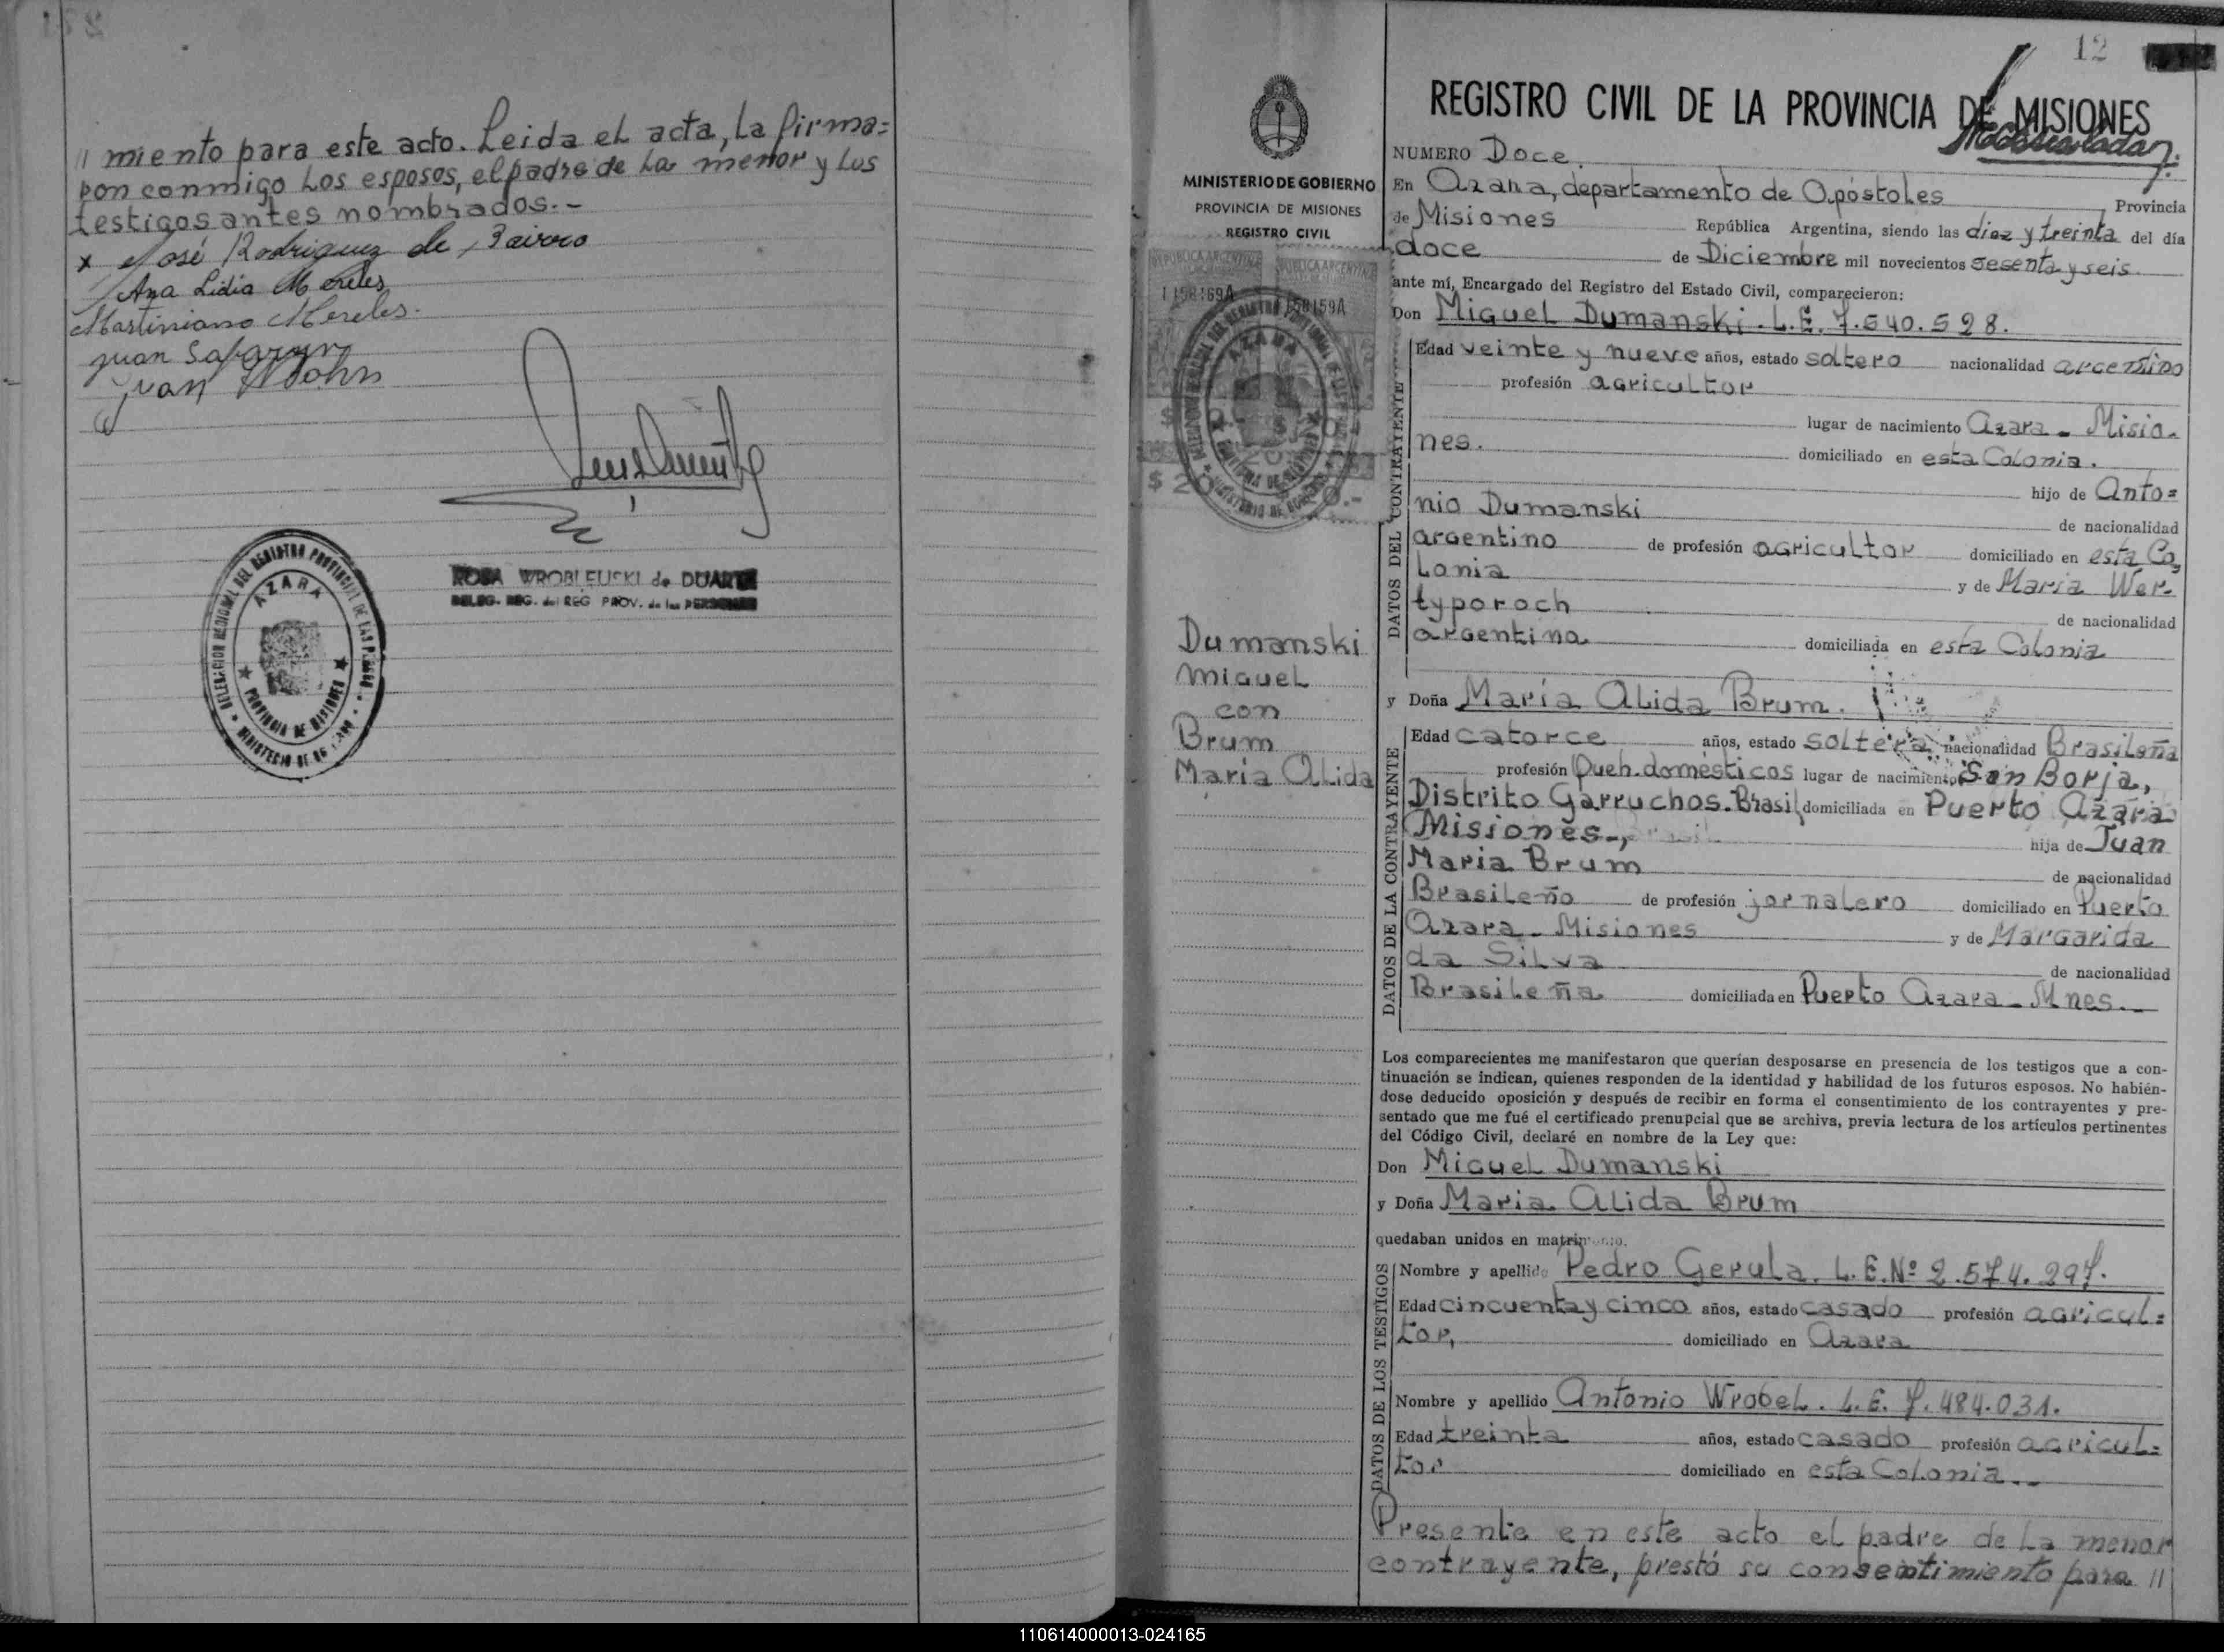 // miento para este acto. Leida el acta, la firma=
ron conmigo los esposos, el padre de la menor y los
testigos antes nombrados.-
x José Rodriguez de
Ana Lidia Mereles
Martiniano Mereles.
Juan
Juan
DELEGACION REGIONAL DEL REGISTRO PROVINCIAL DE LAS PERSONAS
AZARA
PROVINCIA DE MISIONES
MINISTERIO DE GOBIERNO
ROSA WROBLEUSKI de DUARTE
DELEG. REG. del REG PROV. de las PERSONAS
12
REGISTRO CIVIL DE LA PROVINCIA DE MISIONES
MINISTERIO DE GOBIERNO
PROVINCIA DE MISIONES
REGISTRO CIVIL
REPUBLICA ARGENTINA
AZARA
$ 20
Dumanski
Miguel
con
Brum
María Alida
NUMERO Doce.
En Azara, departamento de Apóstoles Provincia
de Misiones República Argentina, siendo las diez y treinta del día
doce de Diciembre mil novecientos sesenta y seis
ante mí, Encargado del Registro del Estado Civil, comparecieron:
Don Miguel Dumanski. L.E. 7.540.598.
DATOS DEL CONTRAYENTE
Edad veinte y nueve años, estado soltero nacionalidad argentino
profesión agricultor
lugar de nacimiento Azara - Misio-
nes. domiciliado en esta Colonia.
hijo de Anto=
nio Dumanski de nacionalidad
argentino de profesión agricultor domiciliado en esta Co=
lonia y de Maria Wer-
typoroch de nacionalidad
argentina domiciliada en esta Colonia
y Doña María Alida Brum.
DATOS DE LA CONTRAYENTE
Edad catorce años, estado soltera nacionalidad Brasileña
profesión Queh. domésticos lugar de nacimiento San Borja,
Distrito Garruchos. Brasil domiciliada en Puerto Azara
Misiones.-, hija de Juan
Maria Brum de nacionalidad
Brasileño de profesión jornalero domiciliado en Puerto
Azara - Misiones y de Margarida
da Silva de nacionalidad
Brasileña domiciliada en Puerto Azara - Mnes.-
Los comparecientes me manifestaron que querían desposarse en presencia de los testigos que a con-
tinuación se indican, quienes responden de la identidad y habilidad de los futuros esposos. No habién-
dose deducido oposición y después de recibir en forma el consentimiento de los contrayentes y pre-
sentado que me fué el certificado prenupcial que se archiva, previa lectura de los artículos pertinentes
del Código Civil, declaré en nombre de la Ley que:
Don Miguel Dumanski
y Doña Maria Alida Brum
quedaban unidos en matrimonio.
DATOS DE LOS TESTIGOS
Nombre y apellido Pedro Gerula. L.E. Nº 2.574.297.
Edad cincuenta y cinco años, estado casado profesión agricul=
tor, domiciliado en Azara
Nombre y apellido Antonio Wrobel. L.E. 7.484.031.
Edad treinta años, estado casado profesión agricul=
tor domiciliado en esta Colonia.-
Presente en este acto el padre de la menor
contrayente, prestó su consentimiento para //
110614000013-024165